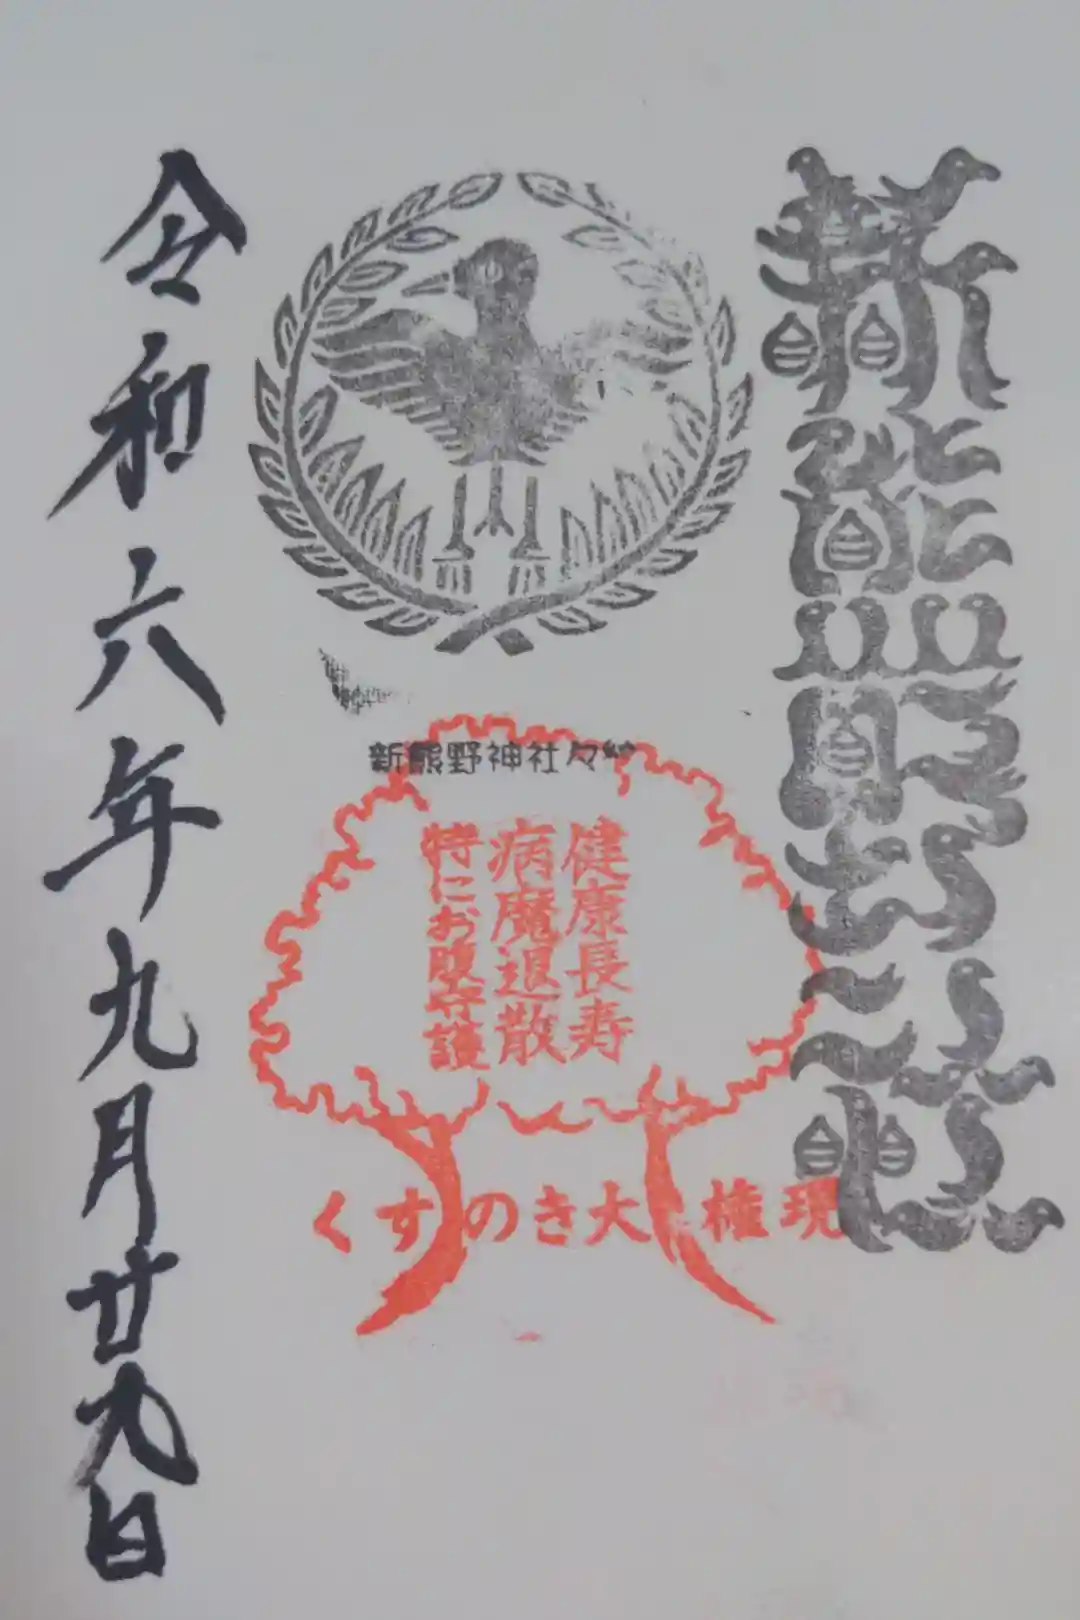 新熊野神社
新熊野神社々紋
健康長寿
病魔退散
特にお腹守護
くすのき大権現
令和六年九月廿九日